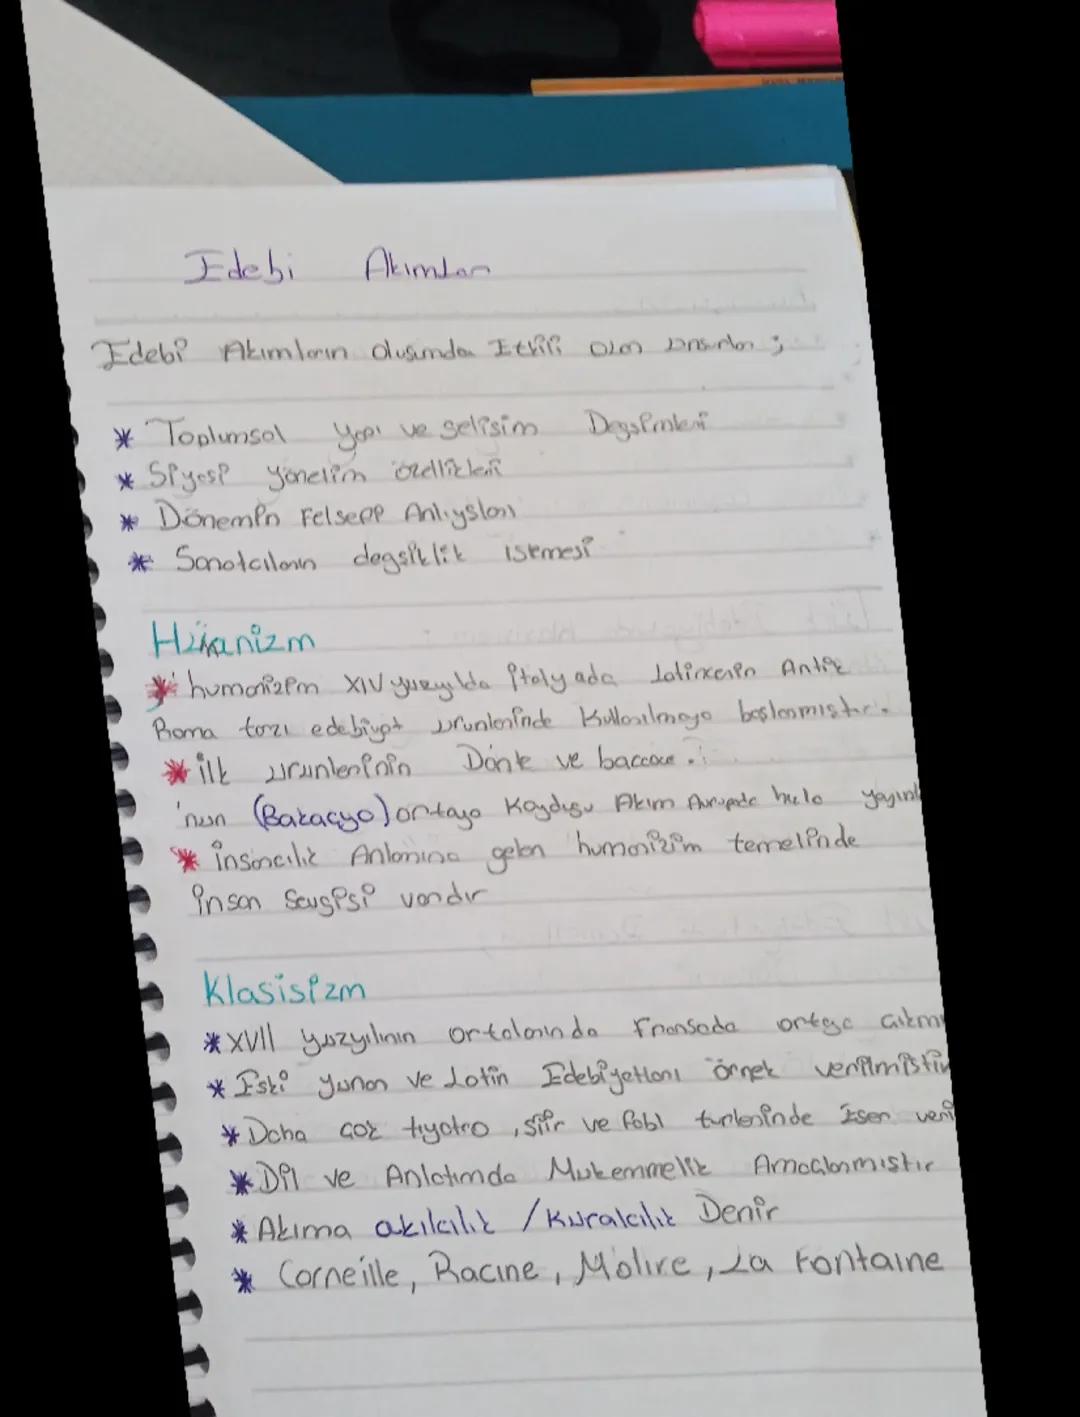 Edebi Akımları
Edebi Akımların oluşumda Etkili olan unsurlar ;
* Toplumsal yapı ve gelişim Degşimleri
* Siyesi yönelim özellikleri
* Dönemin Felsefi Anlıyşları
* Sanatcıların degşiklik istemesi
Hümanizm
* humanizim XIV yuzyılda italyada latincenin Antik
Roma tarzı edebiyat urunlerinde Kullanılmaya başlanmıştır.
* ilk urunlerinin Dante ve baccace.
'nun (Bakaçyo) ortaya Koyduğu Akım Avrupada hızla
* insancılık Anlamına gelen humanizim temelinde
insan sevgisi vardır
Klasisizm
* XVII yuzyılının ortalarında Fransada ortaya
* Eski yunan ve Latin Edebiyatları örnek
* Daha çok tiyatro , şiir ve fabl turlerinde Eser
* Dil ve Anlatımda Mukemmelik Amaclanmıştır
* Akıma akılcılık / Kuralcılık Denir
* Corneille, Racine, Molire, La Fontaine